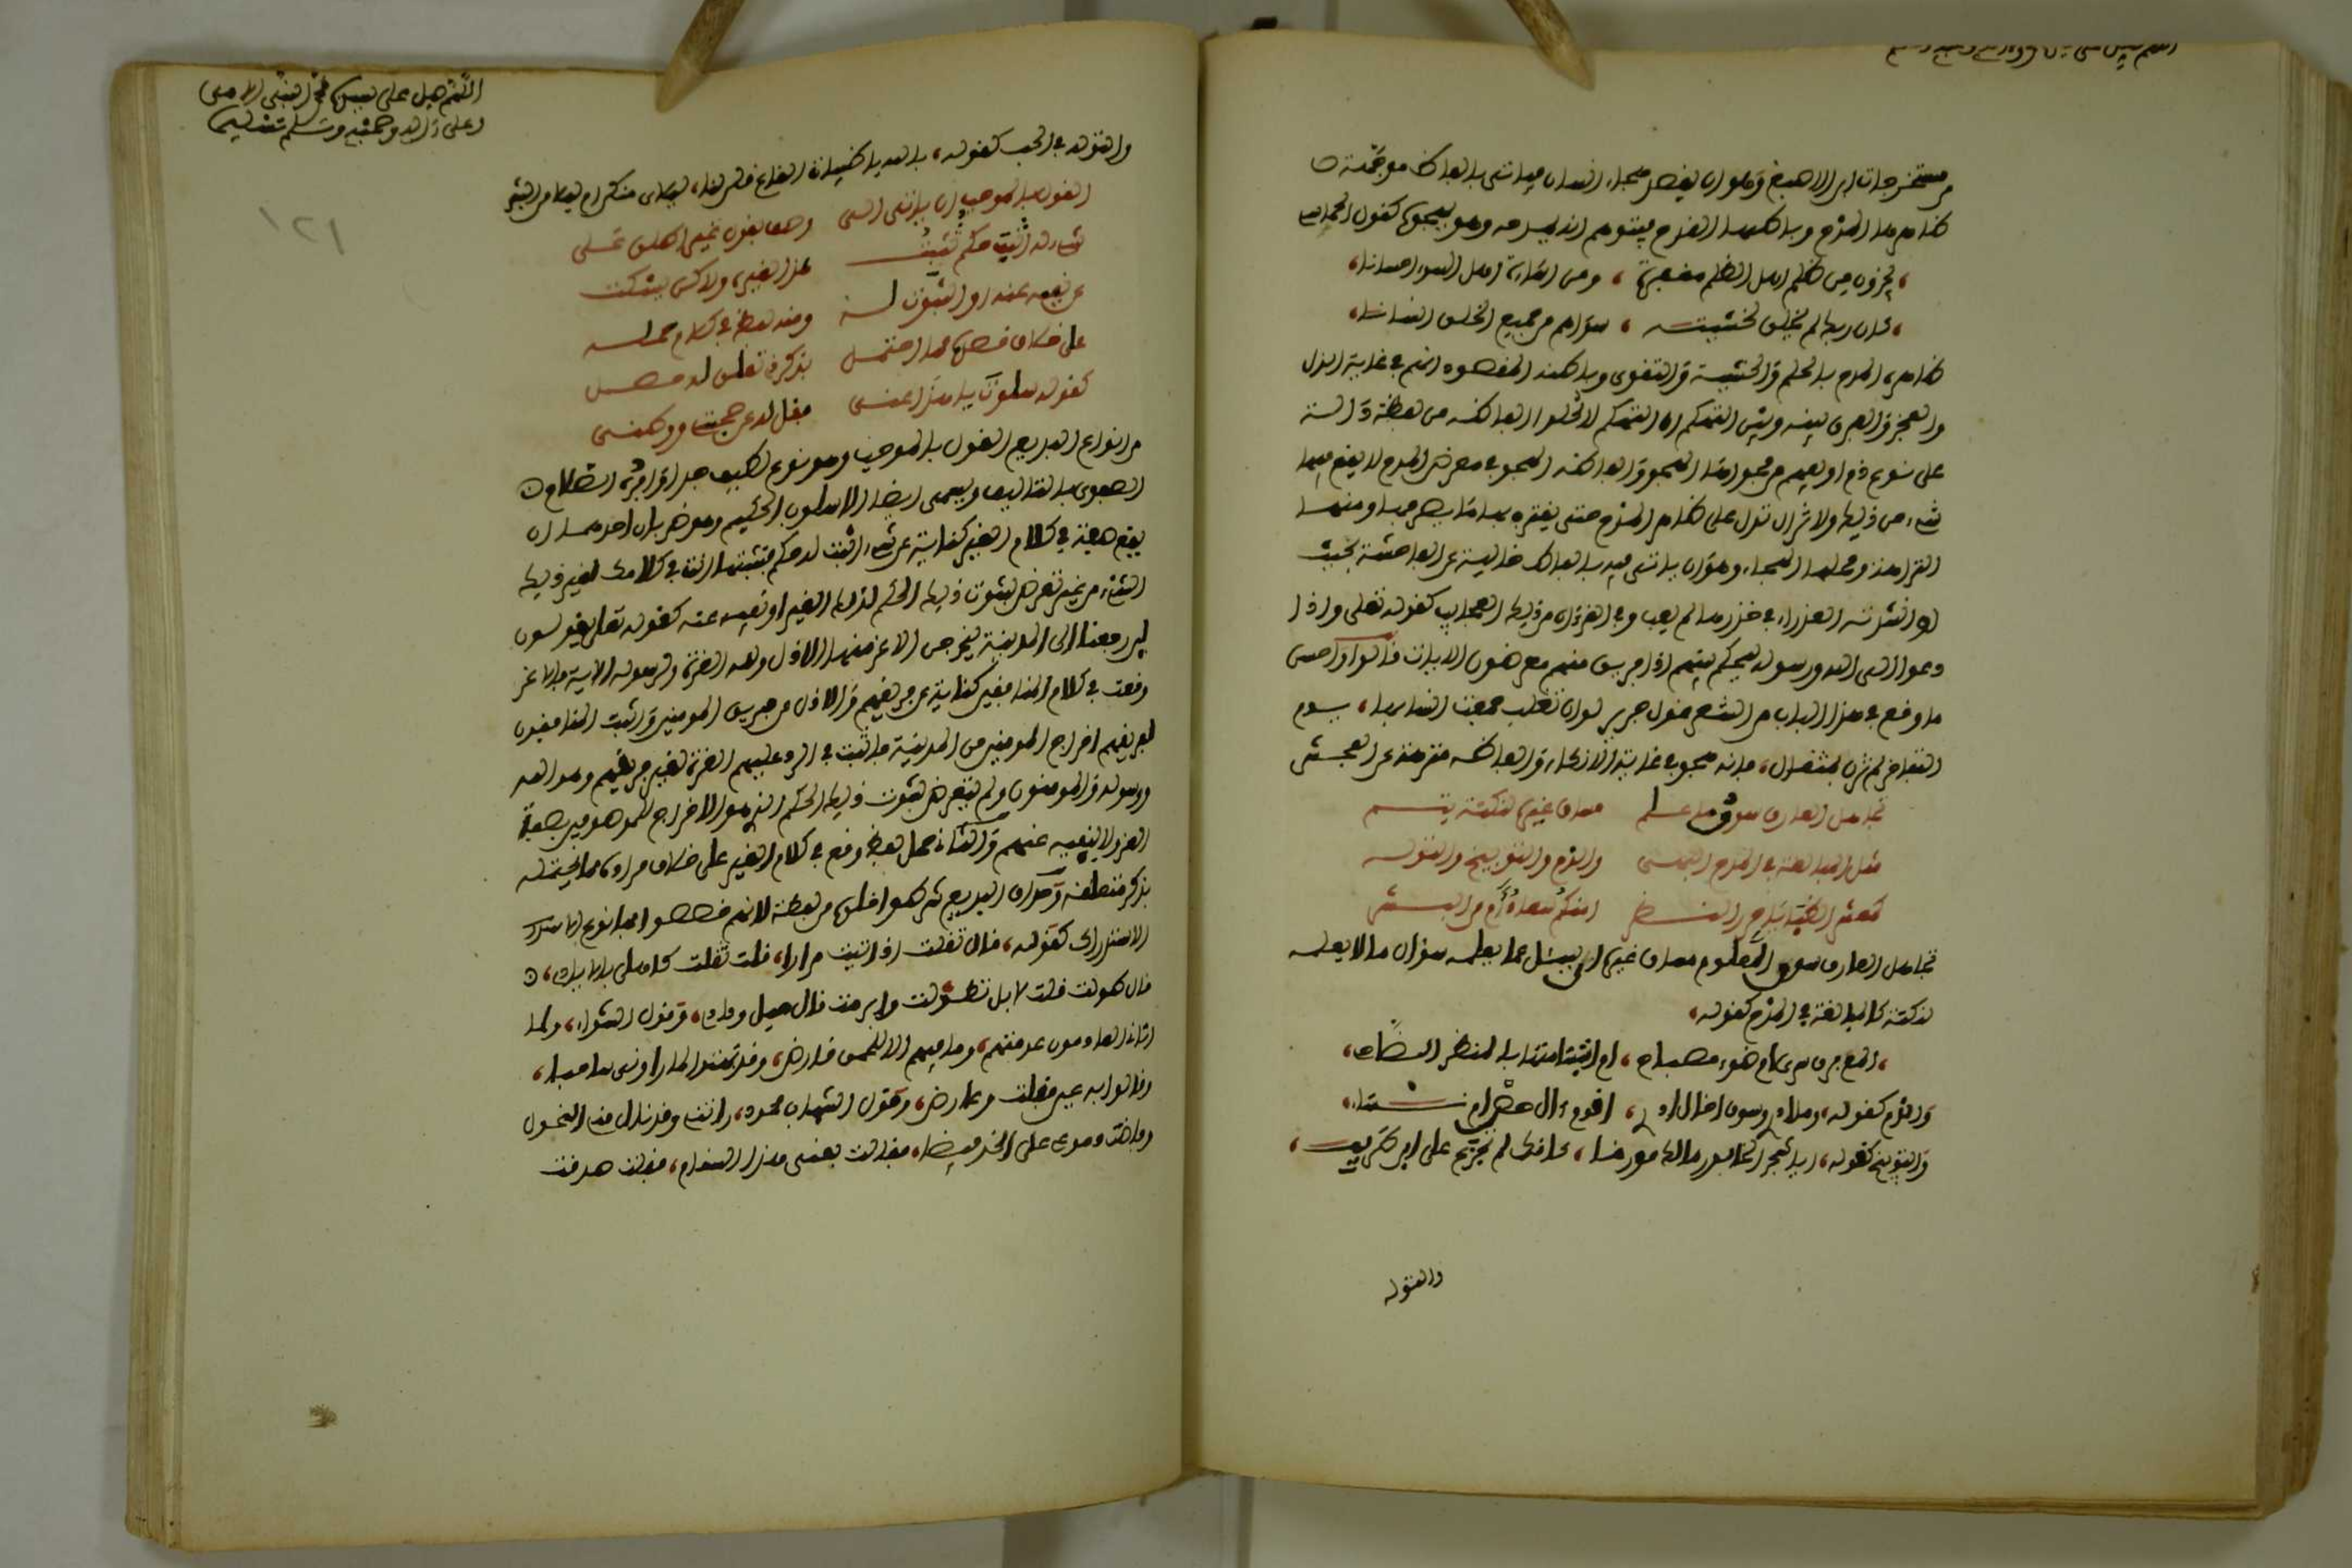 من مستخرجات ابن ابي الاصبع وهو ان يقصد هجاء انسان فياتي بالفاظ موجهة
ظاهرها المدح وباطنها القدح فيتوهم انه يمدحه وهو يهجوه كقول الحماسي
يجزون من ظلم اهل الظلم مغفرة ، ومن اساءة اهل السوء احسانا
كان ربك لم يخلق لخشيته ، سواهم من جميع الخلق انسانا
ظاهره المدح بالحلم والخشية والتقوى وباطنه المقصود انهم في غاية الذل
والعجز والفرق بينه وبين التهكم ان التهكم لا تخلوا الفاظه من لفظة دالة
على نوع ذم او يفهم من فحواها الهجو والفاظ الهجو في معرض المدح لا يقع فيها
شيء من ذلك ولا تزال تدل على ظاهر المدح حتى يقترن بها ما يصرفها ومنها
النزاهة ومحلها الهجاء وهو ان ياتي فيه بالفاظ خالية عن الفاحشة بحيث
لو انشدته العذراء في خدرها لم يعب وفي القرءان من ذلك العجايب كقوله تعلى واذا
دعوا الى الله ورسوله ليحكم بينهم اذا فريق منهم معرضون الايات قالوا واحسن
ما وقع في هذا الباب من الشعر قول جرير لو ان تغلب جمعت انسابها ، يوم
التفاخر لم تزن مثقال ، فانه هجو في غاية الانكاء والفاظه منزهة عن الفحش
تجاهل العارف سوق ما علم مساق غيره لنكتة يتم
مثل المبالغة في المدح والذم والتوبيخ والتوله
تجاهل العارف سوق المعلوم مساق غيره اي يسئل عما يعلمه سؤال ما لا يعلمه
لنكتة كالمبالغة في المدح كقوله
المع برق سرى ام ضوء مصباح ، ام ابتسامتها بالمنظر الضاحي
والذم كقوله ، وما ادري وسوف اخال ادري ، اقوم ءال حصن ام نساء
والتوبيخ كقوله ، ايا شجر الخابور مالك مورقا ، كانك لم تجزع على ابن طريف
والتوله
اللهم صل على سيدنا محمد النبي الامي
وعلى ءاله وصحبه وسلم تسليما
١٢١
والتوله في الحب كقوله ، بالله يا ظبيات القاع قلن لنا ، ليلاي منكن ام ليلى من البشر
القول بالموجب ان ياتي
شيء له اثبت حكم تثبت عن الغير ولاكن يسكت
عن نفيه عنه او الثبوت له ومنه لفظ في كلام حمله
على خلاف قصده مما احتمل بذكر تعلق له حصل
من انواع البديع القول بالموجب وهو نوع لطيف جدا
ويسمى ايضا الاسلوب الحكيم وهو ضربان احدهما ان
يقع صفة في كلام الغير كناية عن شيء اثبت له حكم فتثبتها انت في كلامك لغير ذلك
الشيء من غير تعرض لثبوت ذلك الحكم لذلك الغير او نفيه عنه كقوله تعلى يقولون
لئن رجعنا الى المدينة ليخرجن الاعز منها الاذل ولله العزة ولرسوله الاية فالاعز
وقعت في كلام المنافقين كناية عن فريقهم والاذل عن فريق المومنين واثبت المنافقون
لفريقهم اخراج المومنين من المدينة فاثبت في الرد عليهم العزة لغير فريقهم وهو الله
ورسوله والمومنون ولم يتعرض لثبوت ذلك الحكم الذي هو الاخراج للموصوفين بصفة
العز ولا لنفيه عنهم والثاني حمل لفظ وقع في كلام الغير على خلاف مراده مما يحتمله
بذكر متعلقه
الاستدراك كقوله ، قال ثقلت اذ اتيت مرارا ، قلت ثقلت كاهلي بالايادي
قال طولت قلت لا بل تطولت وابرمت قال حبل ودادي ، وقول الشواء ، ولما
اتاني العاذلون عدمتهم ، وما فيهم الا للحمي قارض ، وقد بهتوا لما راوني شاحبا
وقالوا به عين فقلت وعارض ، وقول الشهاب محمود ، راتني وقد نال مني النحول
وفاضت دموعي على الخد فيضا ، فقالت بعيني هذا السقام ، فقلت صدقت